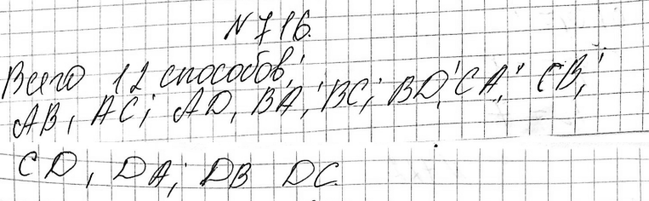 N 716.
Всего 12 способов;
AB, AC; AD, BA; BC; BD; CA; CB;
CD, DA; DB DC.